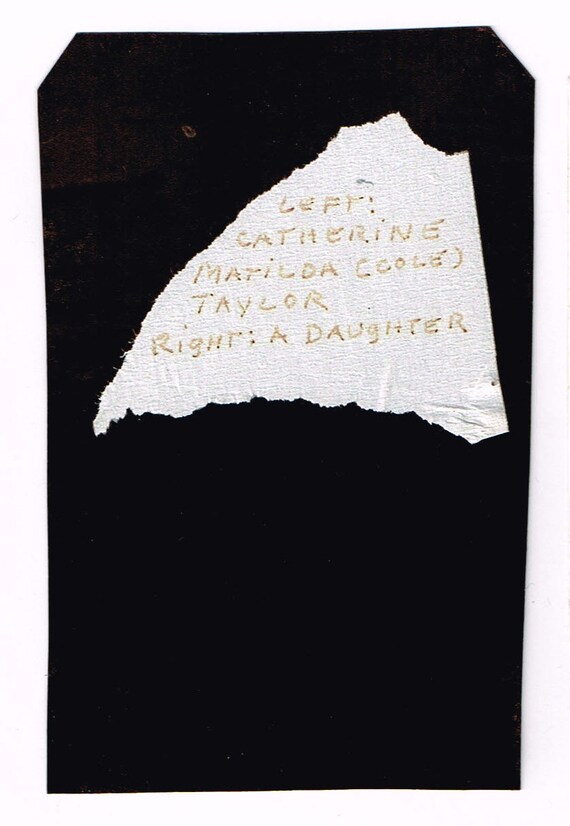 LEFT:
CATHERINE
MATILDA (COLE)
TAYLOR
Right: A DAUGHTER